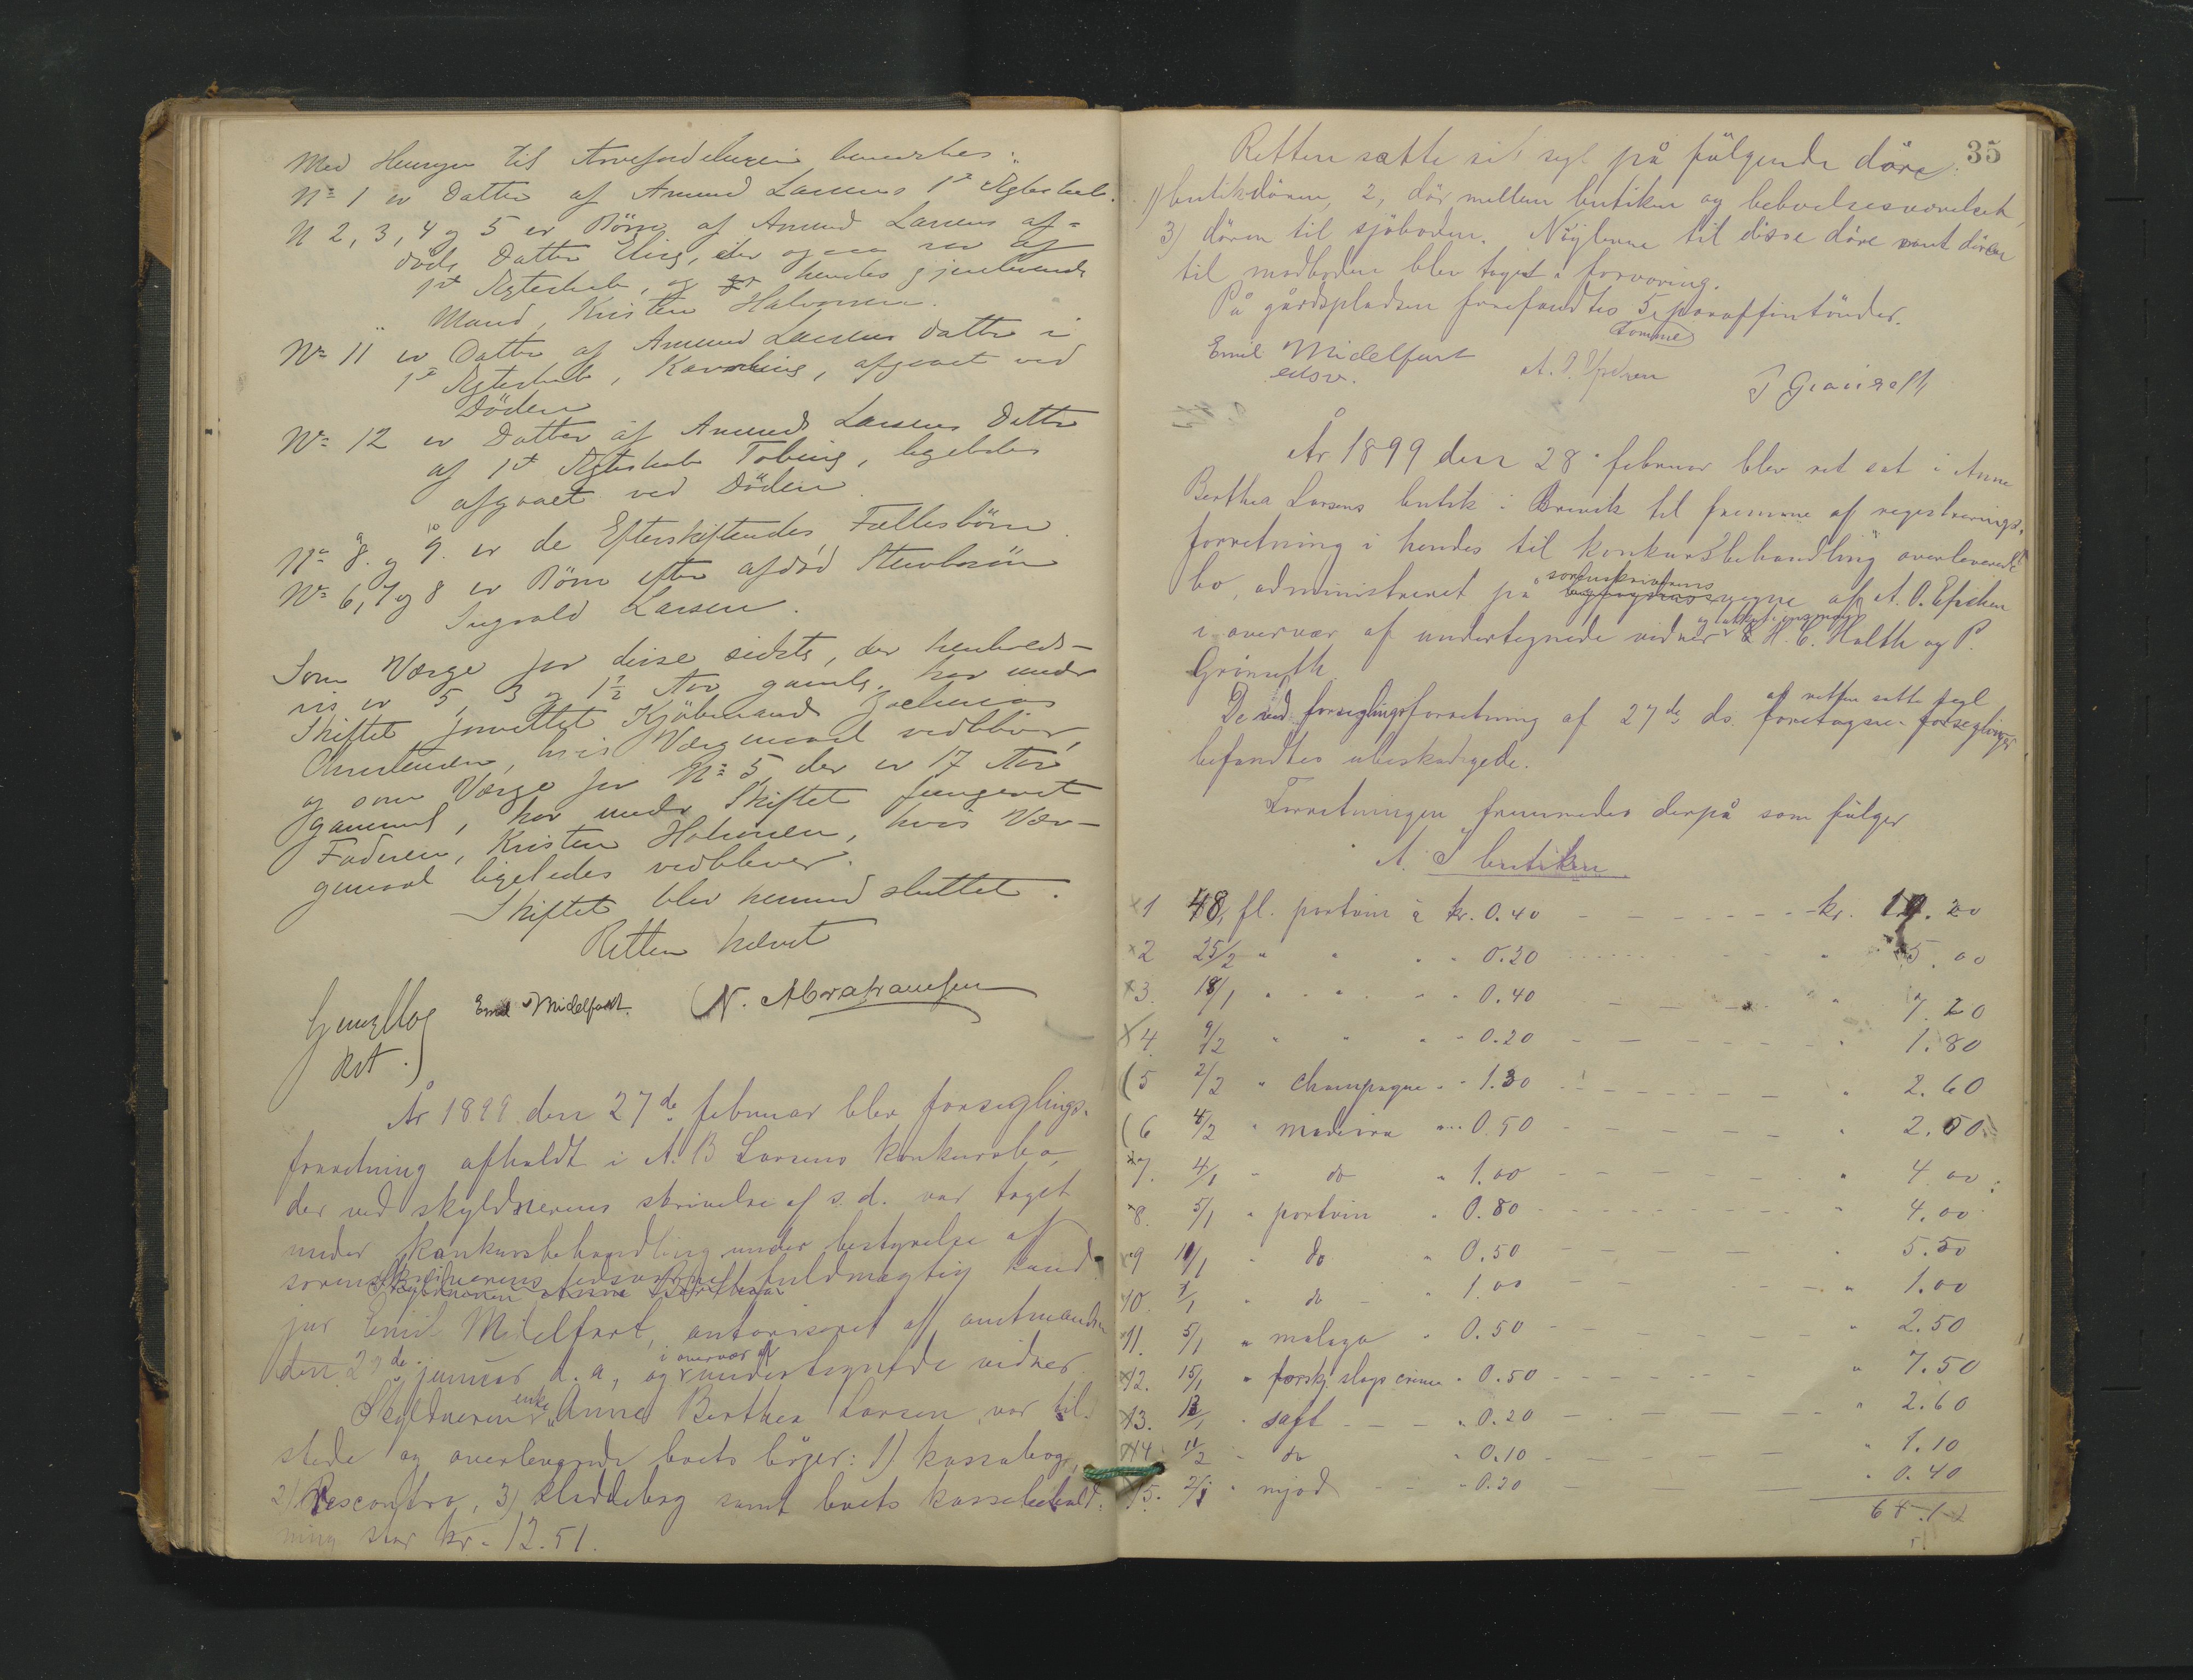 Med Hensyn til Arvefordelingen bemærkes:
No 1 er Datter af Amund Larsens 1ste Ægteskab.
N 2, 3, 4 og 5 er Börn af Amund Larsens af-
döde Datter Elise, der ogsaa var af
1st Ægteskab, og hendes gjenlevende
Mand, Kristen Halvorsen.
No 11 er Datter af Amund Larsens datter i
1ste Ægteskab, Karoline, afgaaet ved
Döden
No 12 er Datter af Amund Larsens Datter
af 1st Ægteskab Tobine, ligeledes
afgaaet ved Döden.
No 8. og 9. er de Efterskiftendes Fællesbörn.
No 6, 7 og 8 er Börn efter afdöd Stenbersön
Ingvald Larsen.
Som Værge for disse sidste, der henholds-
vis er 5, 3 og 1½ Aar gamle, har under
Skiftet forrettet Kjöbmand
Christensen, hvis Værgemaal vedbliver,
og som Værge for No 5, der er 17 Aar
gammel, har under Skiftet fungeret
Faderen, Kristen Halvorsen, hvis Vær-
gemaal ligeledes vedbliver.
Skiftet blev hermed sluttet.
Retten hævet
Emil Midelfart. N. Abrahamsen
År 1899 den 27de februar blev forseglings-
forretning afholdt i A. B Larsens konkursbo,
der ved skyldnerens skrivelse af s. d. var taget
under konkursbehandling under bestyrelse af
sorenskriverens fuldmægtig kand.
jur Emil Midelfart, autoriseret af amtmanden
den 27de januar d. a, og i overvær af undertegnede vidner.
Skyldneren enke Anne Berthea Larsen var til
stede og overleverede boets böger: 1) kassabog,
2) Rescontro, 3) kladdebog samt boets kassabehold-
ning stor kr. 12.51.
35
Retten satte sit segl på fölgende döre:
1) butikdören, 2, dör mellem butiken og bebeolsesværelset,
3) dören til sjöboden. Nöglerne til disse döre samt dören
til madboden blev taget i forvaring.
På gårdspladsen forefandtes 5 tomme paraffintönder.
Emil Midelfart
edsv.
A. O. Efsken
P Grönseth
År 1899 den 28 februar blev ret sat i Anne
Berthea Larsens butik i Brevik til fremme af registrerings-
forretning i hendes til konkursbehandling overleverede
bo, administreret på sorenskriverens vegne af A. O. Efsken
i overvær af undertegnede vidner H. C. Holth og P.
Grönseth
De ved forseglingsforretning af 27de ds. af retten satte segl foretagne forseglinger
befandtes ubeskadigede.
Forretningen fremmedes derpå som fölger
A. I butiken
1 48 fl. portvin à kr. 0.40 - - - kr. 19.20
2 25/2 " " " " 0.20 - - - " 5.00
3. 18/1 " " " " 0.40 - - - " 7.20
4. 9/2 " " " " 0.20 - - - " 1.80
5 2/2 " champagne " " 1.30 - - - " 2.60
6 4/2 " madeira " " 0.50 - - - " 2.00
7. 4/1 " do " 1.00 - - - " 4.00
8. 5/1 " portvin " 0.80 - - - " 4.00
9 11/1 " do " 0.50 - - - " 5.50
10. 1/1 " do " 1.00 - - - " 1.00
11. 5/1 " malaga " 0.50 - - - " 2.50
12. 15/1 " forskj. slags creme " 0.50 - - - " 7.50
13. 13/1 " saft - - " 0.20 - - - " 2.60
14. 11/2 " do " 0.10 - - - " 1.10
15. 2/1 " mjød - - " 0.20 - - - " 0.40